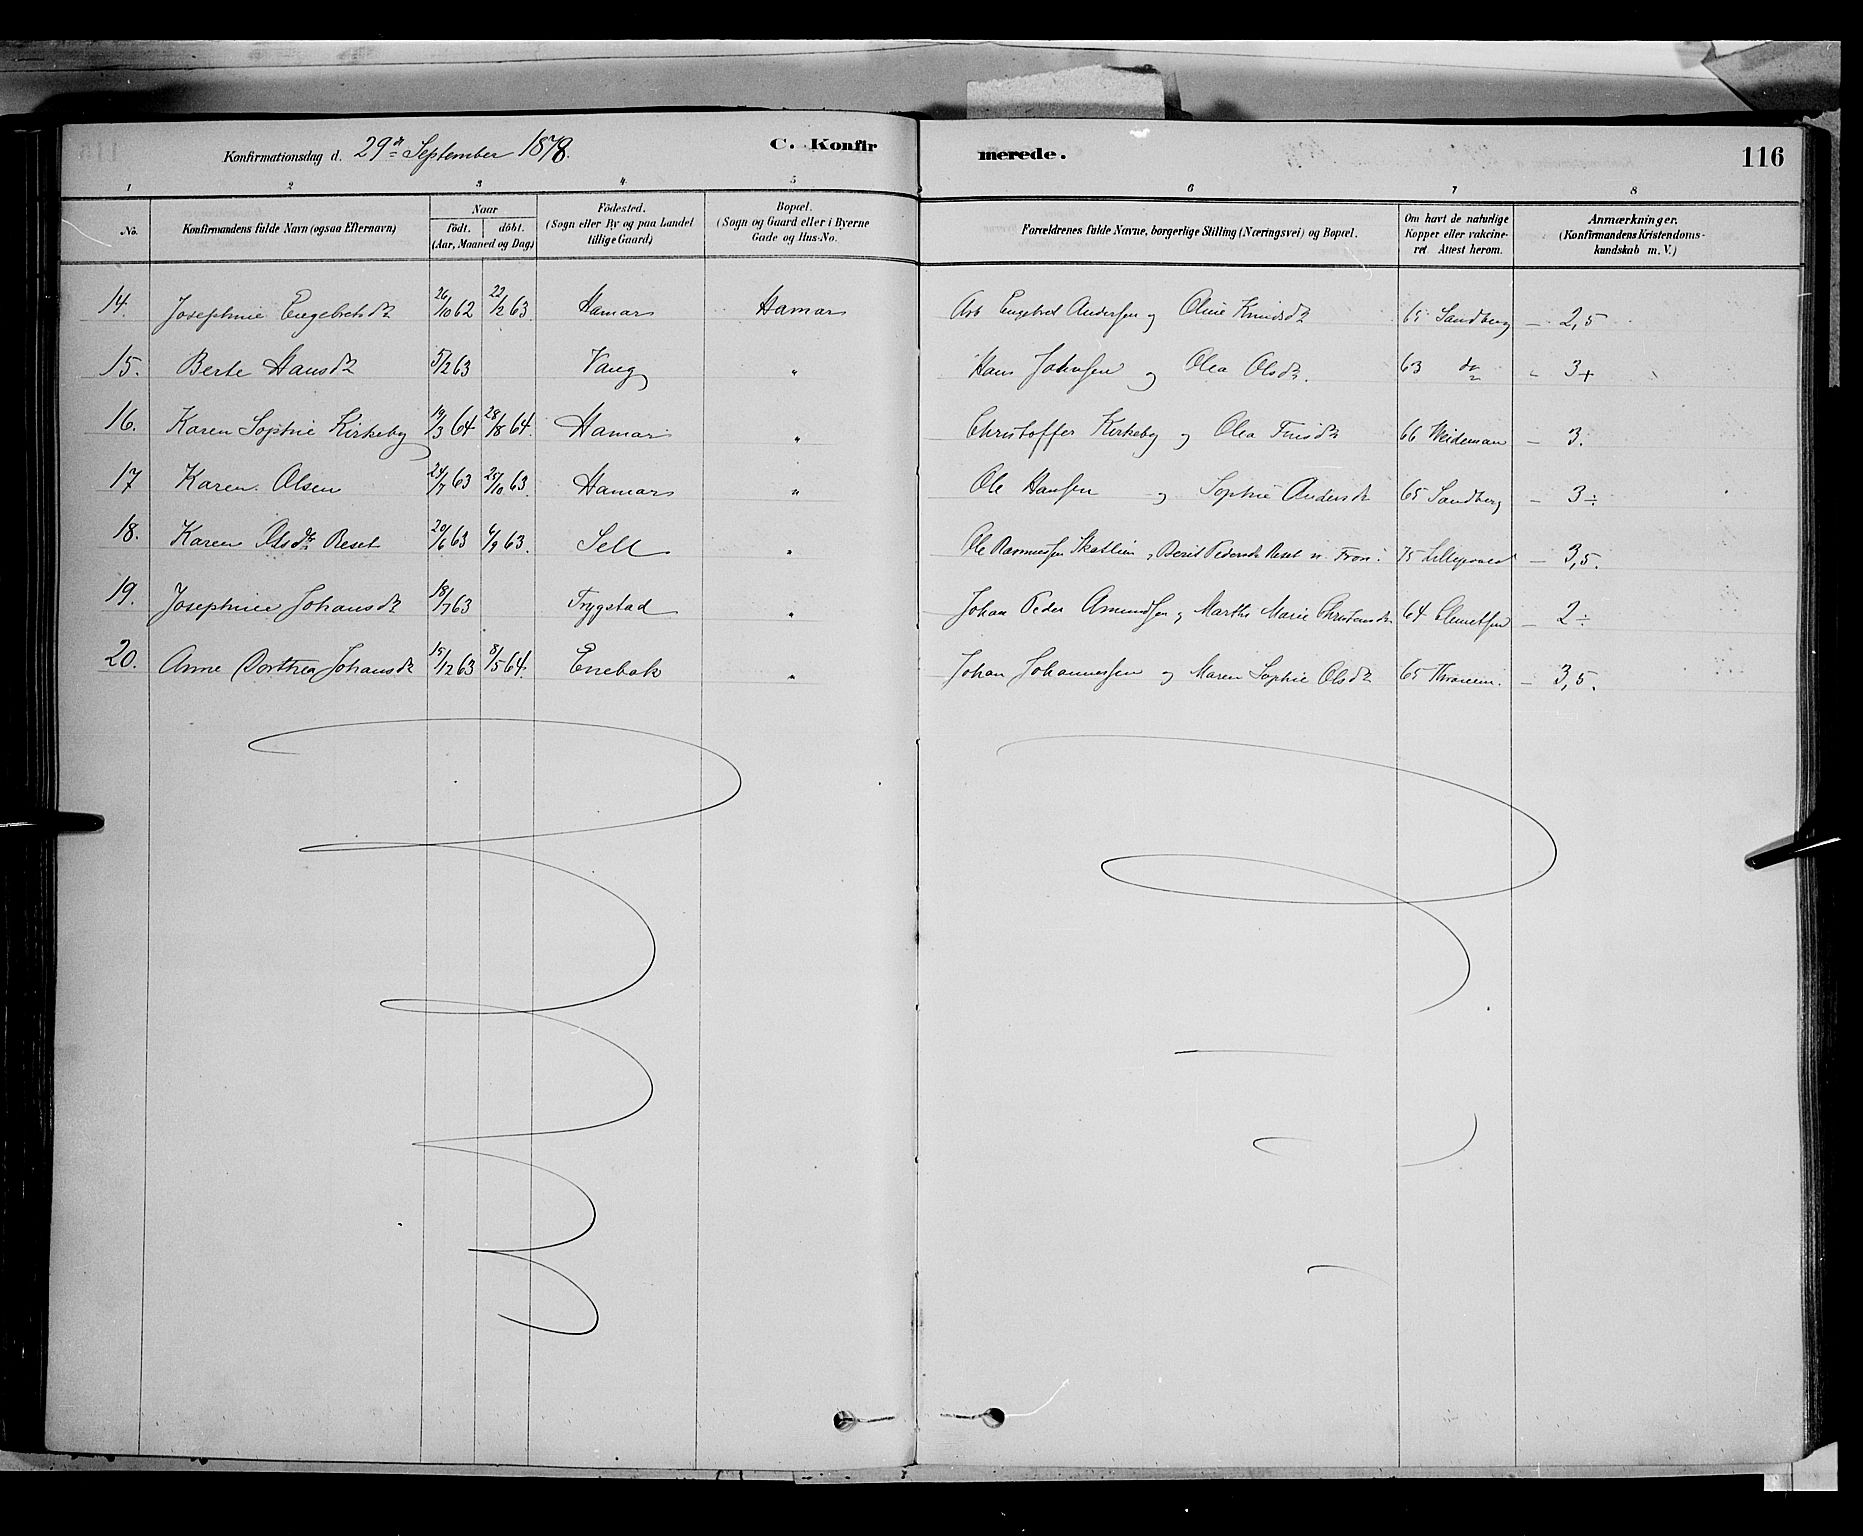 Konfirmationsdag d. 29de September 1878. C. Konfirmerede. 116
1 2 3 4 5 6 7 8
No. Konfirmandens fulde Navn (ogsaa Efternavn) Naar födt. döbt. (Aar, Maaned og Dag) Födested. (Sogn eller By og paa Landet tillige Gaard) Bopæl. (Sogn og Gaard eller i Byerne Gade og Hus-No. Forældrenes fulde Navne, borgerlige Stilling (Næringsvei) og Bopæl. Om havt de naturlige Kopper eller vakcineret Attest herom. Anmærkninger. (Konfirmandens Kristendomskundskab m. V.)
14. Josephine Engebretsdt 26/10 62 22/2 63 Hamar Hamar Arb Engebret Andersen og Oline Knudsdt 65 Sandberg — 2,5
15. Berte Hansdt 5/2 63 Vang " Hans Johnsen og Olea Olsdt. 63 do — 3+
16. Karen Sophie Kirkeby 19/3 64 28/8 64. Hamar " Christoffer Kirkeby og Olea 66 Weideman — 3.
17 Karen Olsen 24/7 63 25/10 63. Hamar " Ole Hansen og Sophie Andersdt 65 Sandberg — 3÷
18. Karen Olsdtr Reset 20/6 63 6/9 63. Sell " Ole Rasmussen 75 — 3,5.
19. Josephine Johansdt 18/7 63 Trygstad " Johan Peder Amundsen og Marthe Marie Christensdt. 64 Clemetsen — 2÷
20. Anne Dorthea Johansdt 15/12 63 8/5 64. Enebak " Johan Johannessen og Maren Sophie Olsdt 65 — 3,5.